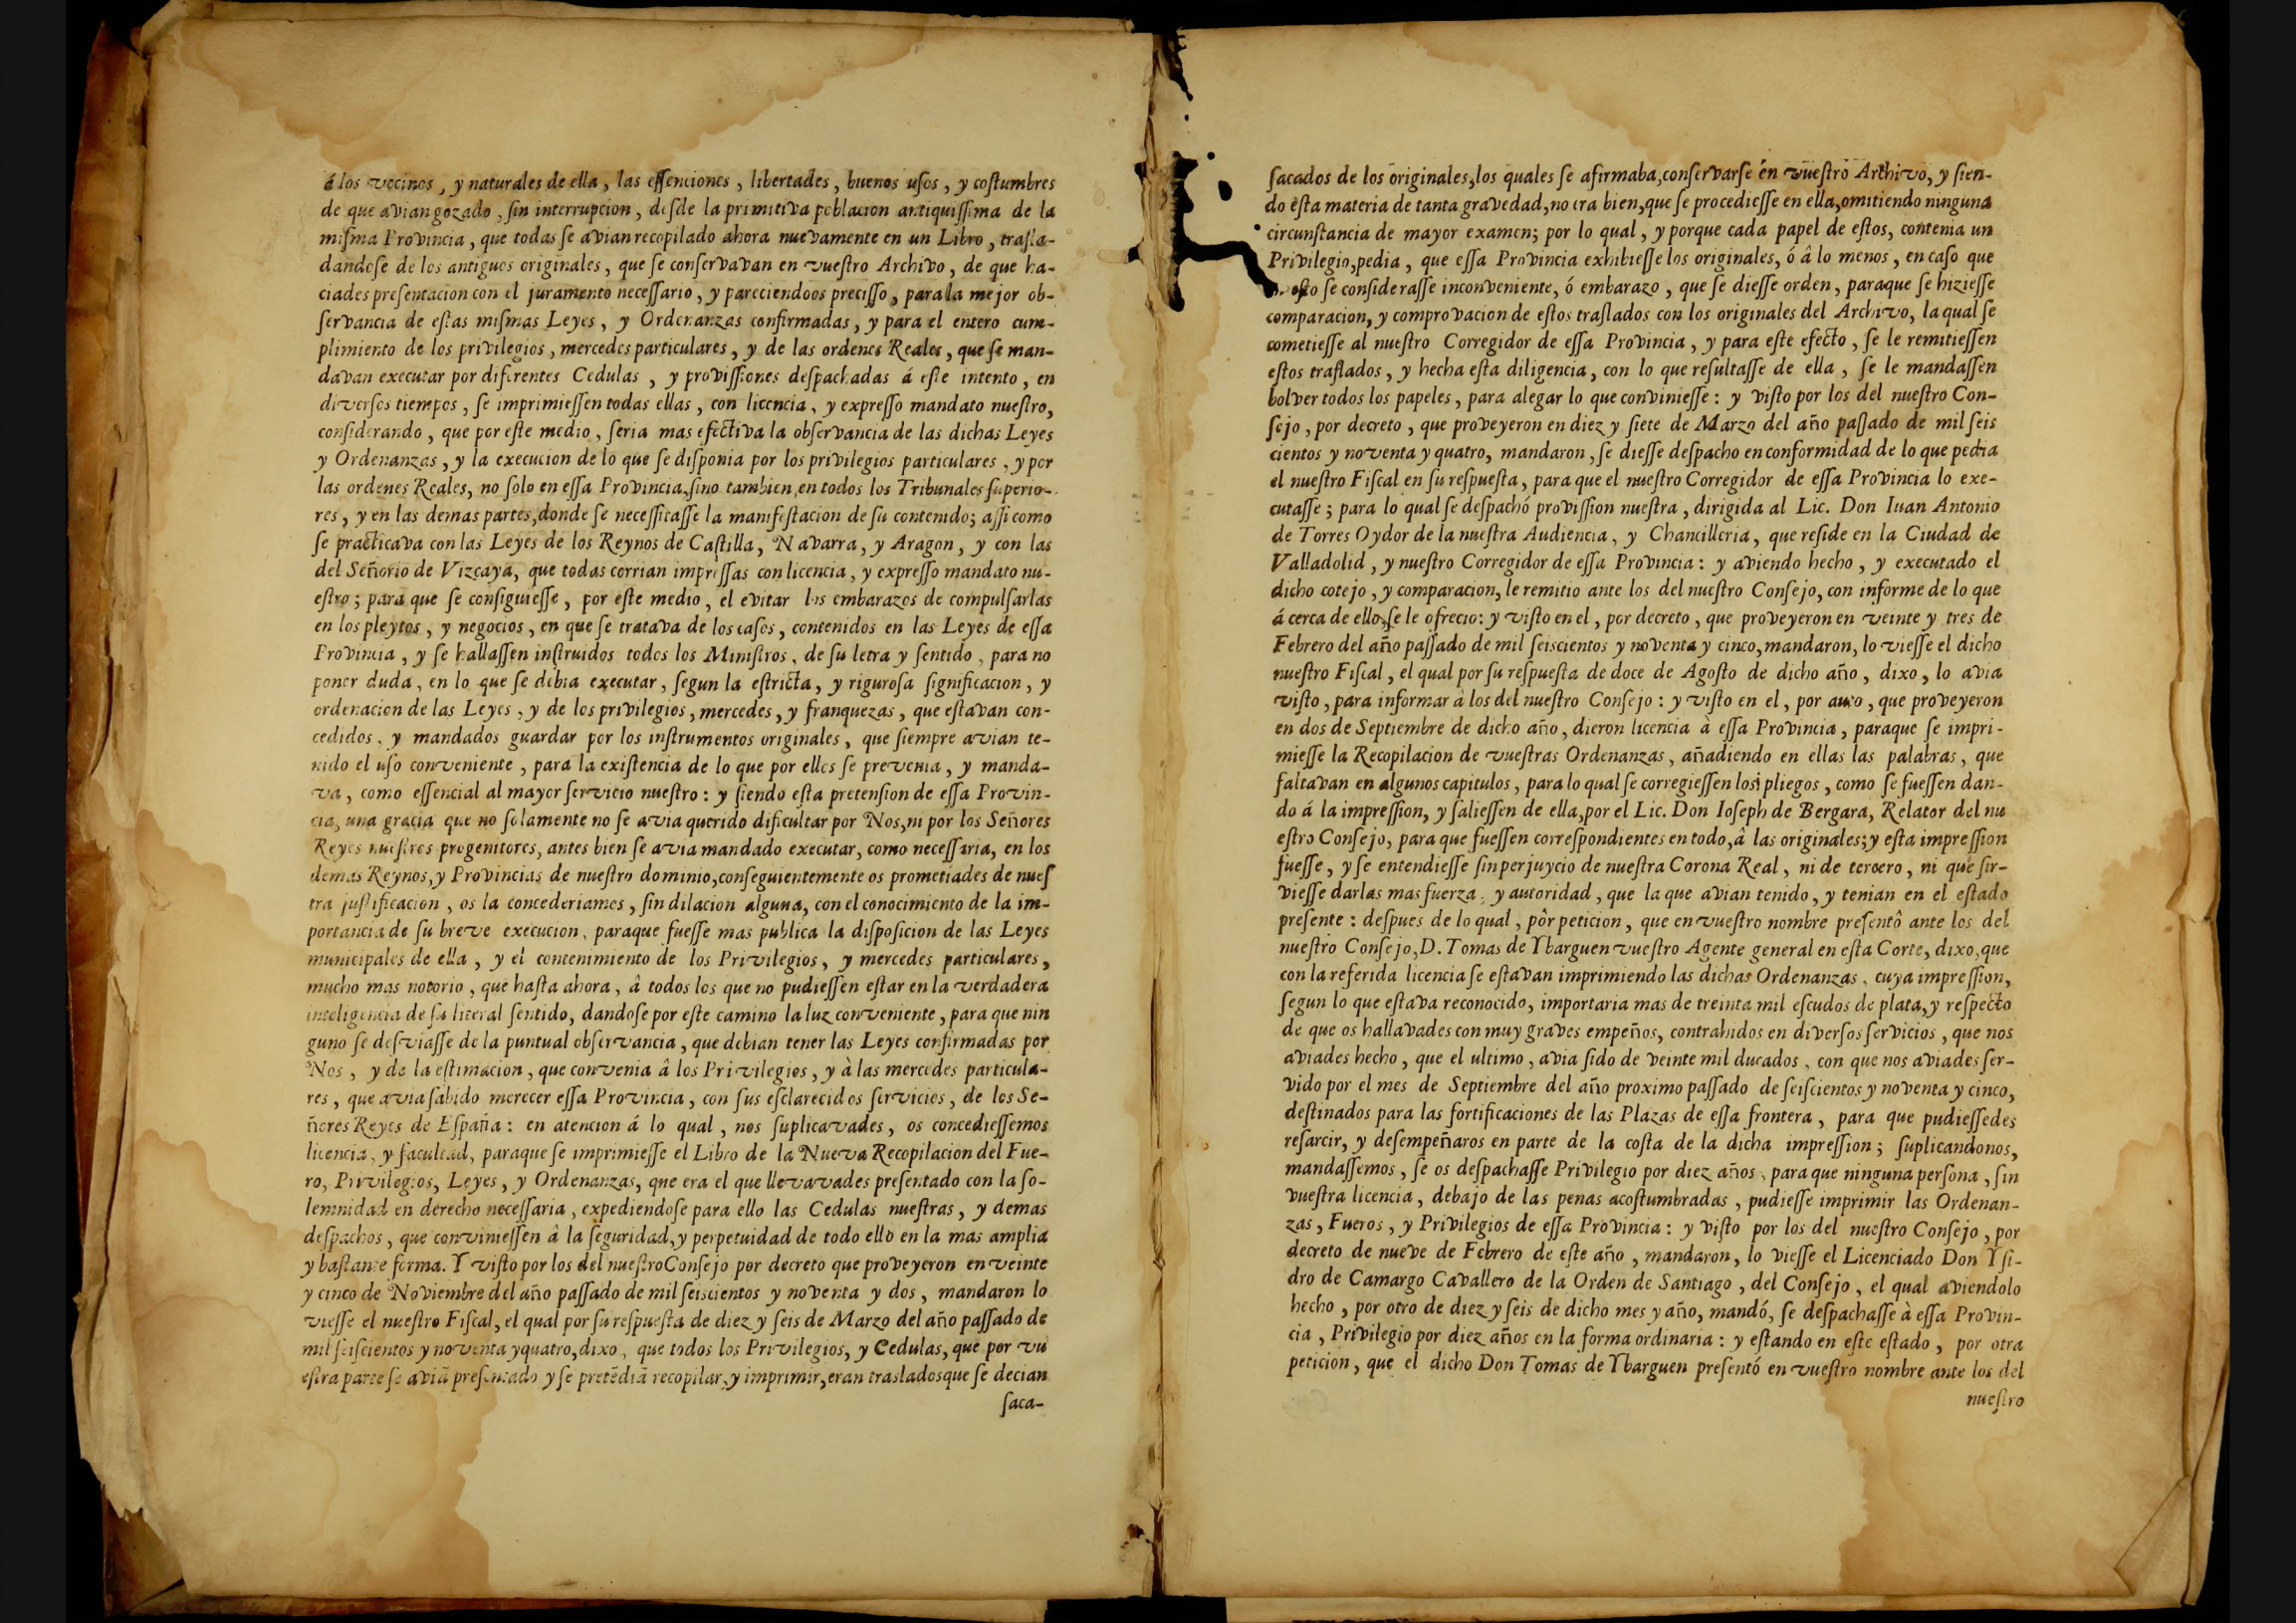 á los vecinos, y naturales de ella, las essenciones, libertades, buenos usos, y costumbres
de que avian gozado, sin interrupcion, desde la primitiva poblacion antiquissima de la
misma Provincia, que todas se avian recopilado ahora nuevamente en un Libro, trasla-
dandose de los antiguos originales, que se conservavan en vuestro Archivo, de que ha-
ciades presentacion con el juramento necessario, y pareciendoos precisso, para la mejor ob-
servancia de estas mismas Leyes, y Ordenanzas confirmadas, y para el entero cum-
plimiento de los privilegios, mercedes particulares, y de las ordenes Reales, que se man-
davan executar por diferentes Cedulas, y provissiones despachadas á este intento, en
diversos tiempos, se imprimiessen todas ellas, con licencia, y expresso mandato nuestro,
considerando, que por este medio, seria mas efectiva la observancia de las dichas Leyes
y Ordenanzas, y la execucion de lo que se disponia por los privilegios particulares, y por
las ordenes Reales, no solo en essa Provincia, sino tambien en todos los Tribunales superio-
res, y en las demas partes, donde se necessitasse la manifestacion de su contenido; assi como
se practicava con las Leyes de los Reynos de Castilla, Navarra, y Aragon, y con las
del Señorio de Vizcaya, que todas corrian impressas con licencia, y expresso mandato nu-
estro; para que se consiguiesse, por este medio, el evitar los embarazos de compulsarlas
en los pleytos, y negocios, en que se tratava de los casos, contenidos en las Leyes de essa
Provincia, y se hallassen instruidos todos los Ministros, de su letra y sentido, para no
poner duda, en lo que se debia executar, segun la estricta, y rigurosa significacion, y
ordenacion de las Leyes, y de los privilegios, mercedes, y franquezas, que estavan con-
cedidos, y mandados guardar por los instrumentos originales, que siempre avian te-
nido el uso conveniente, para la existencia de lo que por ellos se prevenia, y manda-
va, como essencial al mayor servicio nuestro: y siendo esta pretension de essa Provin-
cia, una gracia que no solamente no se avia querido dificultar por Nos, ni por los Señores
Reyes nuestros progenitores, antes bien se avia mandado executar, como necessaria, en los
demas Reynos, y Provincias de nuestro dominio, conseguientemente os prometiades de nues
tra justificacion, os la concederiamos, sin dilacion alguna, con el conocimiento de la im-
portancia de su breve execucion, paraque fuesse mas publica la disposicion de las Leyes
municipales de ella, y el contenimiento de los Privilegios, y mercedes particulares,
mucho mas notorio, que hasta ahora, â todos los que no pudiessen estar en la verdadera
inteligencia de su literal sentido, dandose por este camino la luz conveniente, para que nin
guno se desviasse de la puntual observancia, que debian tener las Leyes confirmadas por
Nos, y de la estimacion, que convenia â los Privilegios, y à las mercedes particula-
res, que avia sabido merecer essa Provincia, con sus esclarecidos servicios, de los Se-
ñores Reyes de España: en atencion á lo qual, nos suplicavades, os concediessemos
licencia, y facultad, paraque se imprimiesse el Libro de la Nueva Recopilacion del Fue-
ro, Privilegios, Leyes, y Ordenanzas, que era el que llevavades presentado con la so-
lemnidad en derecho necessaria, expediendose para ello las Cedulas nuestras, y demas
despachos, que conviniessen â la seguridad, y perpetuidad de todo ello en la mas amplia
y bastante forma. Y visto por los del nuestro Consejo por decreto que proveyeron en veinte
y cinco de Noviembre del año passado de mil seiscientos y noventa y dos, mandaron lo
viesse el nuestro Fiscal, el qual por su respuesta de diez y seis de Marzo del año passado de
mil seiscientos y noventa y quatro, dixo, que todos los Privilegios, y Cedulas, que por vu
estra parte se aviã presentado y se pretẽdiã recopilar, y imprimir, eran traslados que se decian
saca-
sacados de los originales, los quales se afirmaba, conservarse en vuestro Archivo, y sien-
do èsta materia de tanta gravedad, no era bien, que se procediesse en ella, omitiendo ninguna
circunstancia de mayor examen; por lo qual, y porque cada papel de estos, contenia un
Privilegio, pedia, que essa Provincia exhibiesse los originales, ó â lo menos, en caso que
esto se considerasse inconveniente, ó embarazo, que se diesse orden, paraque se hiziesse
comparacion, y comprovacion de estos traslados con los originales del Archivo, la qual se
cometiesse al nuestro Corregidor de essa Provincia, y para este efecto, se le remitiessen
estos traslados, y hecha esta diligencia, con lo que resultasse de ella, se le mandassen
bolver todos los papeles, para alegar lo que conviniesse: y visto por los del nuestro Con-
sejo, por decreto, que proveyeron en diez y siete de Marzo del año passado de mil seis
cientos y noventa y quatro, mandaron, se diesse despacho en conformidad de lo que pedia
el nuestro Fiscal en su respuesta, para que el nuestro Corregidor de essa Provincia lo exe-
cutasse; para lo qual se despachó provission nuestra, dirigida al Lic. Don Iuan Antonio
de Torres Oydor de la nuestra Audiencia, y Chancilleria, que reside en la Ciudad de
Valladolid, y nuestro Corregidor de essa Provincia: y aviendo hecho, y executado el
dicho cotejo, y comparacion, le remitio ante los del nuestro Consejo, con informe de lo que
á cerca de ello, se le ofrecio: y visto en el, por decreto, que proveyeron en veinte y tres de
Febrero del año passado de mil seiscientos y noventa y cinco, mandaron, lo viesse el dicho
nuestro Fiscal, el qual por su respuesta de doce de Agosto de dicho año, dixo, lo avia
visto, para informar à los del nuestro Consejo: y visto en el, por auto, que proveyeron
en dos de Septiembre de dicho año, dieron licencia à essa Provincia, paraque se impri-
miesse la Recopilacion de vuestras Ordenanzas, añadiendo en ellas las palabras, que
faltavan en algunos capitulos, para lo qual se corregiessen los pliegos, como se fuessen dan-
do á la impression, y saliessen de ella, por el Lic. Don Ioseph de Bergara, Relator del nu
estro Consejo, para que fuessen correspondientes en todo, â las originales; y esta impression
fuesse, y se entendiesse sin perjuycio de nuestra Corona Real, ni de tercero, ni que sir-
viesse darlas mas fuerza, y autoridad, que la que avian tenido, y tenian en el estado
presente: despues de lo qual, pôr peticion, que en vuestro nombre presentô ante los del
nuestro Consejo, D. Tomas de Ybarguen vuestro Agente general en esta Corte, dixo, que
con la referida licencia se estavan imprimiendo las dichas Ordenanzas, cuya impression,
segun lo que estava reconocido, importaria mas de treinta mil escudos de plata, y respecto
de que os hallavades con muy graves empeños, contrahidos en diversos servicios, que nos
aviades hecho, que el ultimo, avia sido de veinte mil ducados, con que nos aviades ser-
vido por el mes de Septiembre del año proximo passado de seiscientos y noventa y cinco,
destinados para las fortificaciones de las Plazas de essa frontera, para que pudiessedes
resarcir, y desempeñaros en parte de la costa de la dicha impression; suplicandonos,
mandassemos, se os despachasse Privilegio por diez años, para que ninguna persona, sin
vuestra licencia, debajo de las penas acostumbradas, pudiesse imprimir las Ordenan-
zas, Fueros, y Privilegios de essa Provincia: y visto por los del nuestro Consejo, por
decreto de nueve de Febrero de este año, mandaron, lo viesse el Licenciado Don Ysi-
dro de Camargo Cavallero de la Orden de Santiago, del Consejo, el qual aviendolo
hecho, por otro de diez y seis de dicho mes y año, mandó, se despachasse à essa Provin-
cia, Privilegio por diez años en la forma ordinaria: y estando en este estado, por otra
peticion, que el dicho Don Tomas de Ybarguen presentó en vuestro nombre ante los del
nuestro